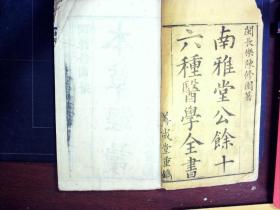 閩長樂陳修園著
南雅堂公餘十
六種醫學全書
善成堂重鐫